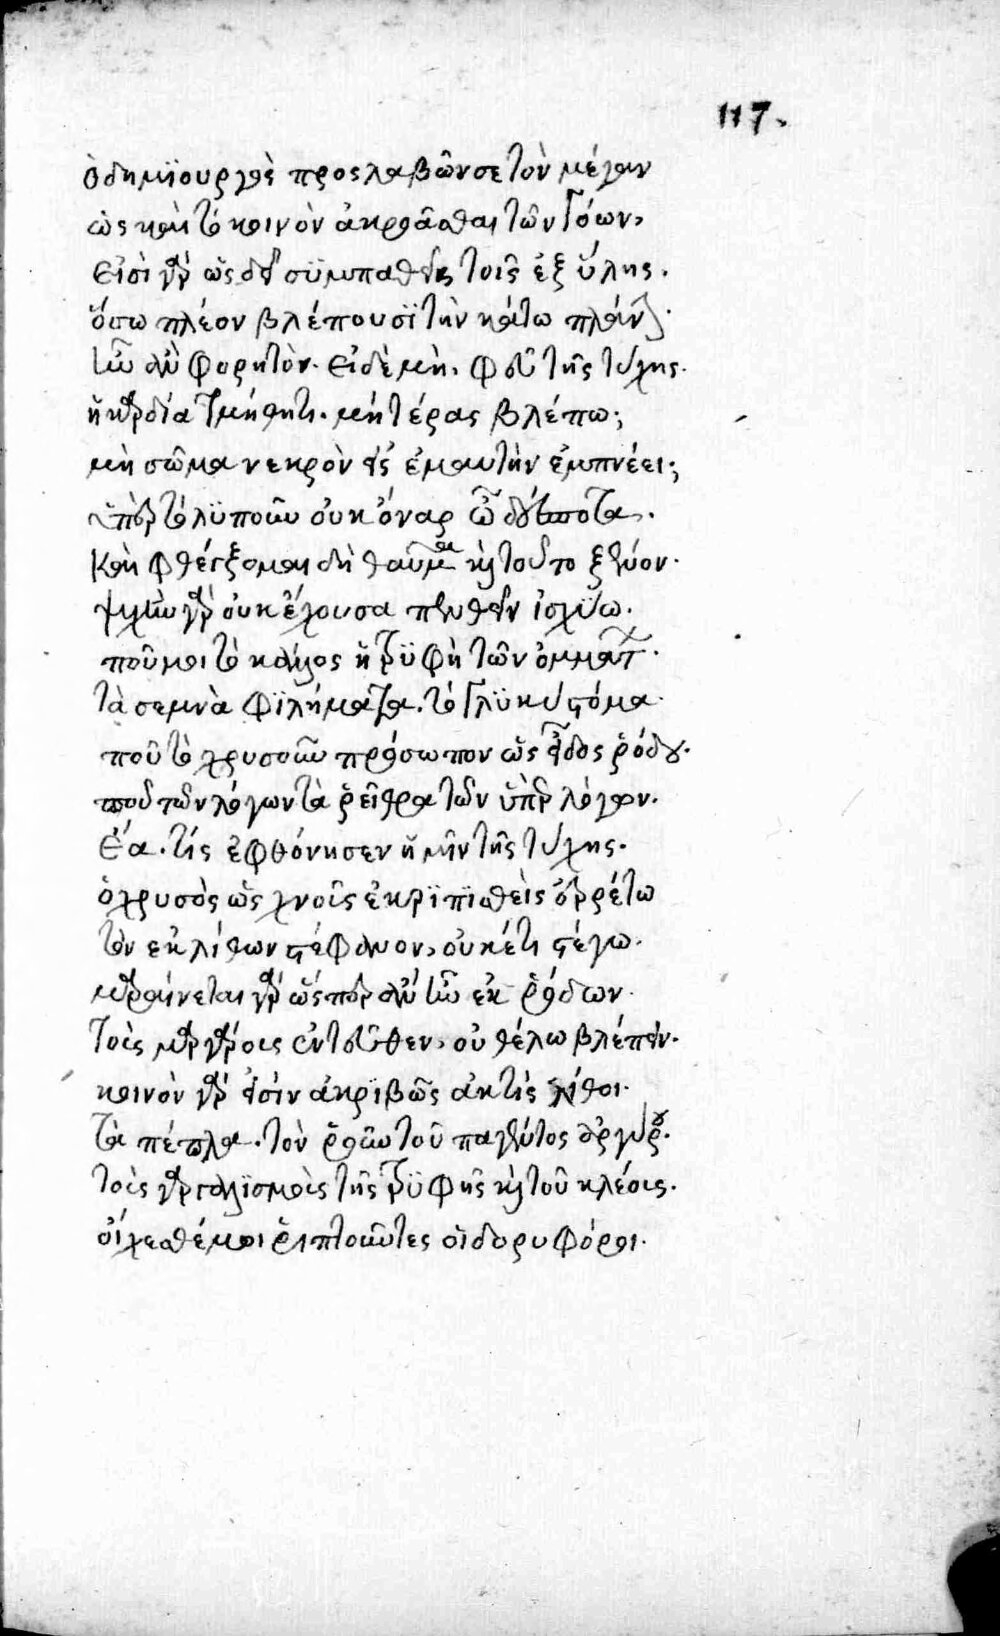 117.
ὁ δημϊουργὸς προςλαβὼν σε τὸν μέγαν
ὡς καὶ τὸ κοινὸν ἀκροᾶσθαι τῶν γόων,
εἰσὶ γὰρ ὡς δεῖ σϋμπαθεῖς τοῖς ἐξ ὕλης.
ὅσω πλέον βλέπουσϊ τὴν κάτω πλάνην.
ἦν ἂν φορητόν. εἰ δὲ μὴ. φεῦ τῆς τύχης.
ἢ καρδία τμήθητι. μὴ τέρας βλέπω;
μὴ σῶμα νεκρὸν εἰς ἐμαυτὴν ἐμπνέει;
ὕπαρ τὸ λϋποῦν οὐκ ὄναρ ὦ
καὶ φθέγξομαι δὴ θαῦμα καὶ τοῦτο ξένον.
ψυχὴν γὰρ οὐκ ἔχουσα πενθεῖν ἰσχύω.
ποῦ μοι τὸ κάλλος ἡ τρϋφὴ τῶν ὀμμάτων.
τὰ σεμνὰ φϊλήματα. τὸ γλϋκὺ στόμα.
ποῦ τὸ χρυσοῦν πρόσωπον ὡς εἶδος ῥόδου.
ποῦ τῶν λόγων τὰ ῥεῖθρα τῶν ὑπὲρ λόγον.
ἔα. τίς ἐφθόνησεν ἡμῖν τῆς τύχης.
ὁ χρυσὸς ὡς χνοῦς ἐκρϊπϊσθεὶς ἐρρέτω
τὸν ἐκ λίθων στέφανον, οὐκέτι στέγω.
μαραίνεται γὰρ ὥσπερ ἂν ἦν ἐκ ῥόδων.
τοὺς μαργάρους ἐντεῦθεν, οὐ θέλω βλέπειν.
κοινὸν γάρ εἰσιν ἀκρϊβῶς ἀκτῆς λίθοι.
τὰ πέπλα. τὸν ῥοῦν τοῦ παγέντος ἀργύρου.
τοὺς γαργαλϊσμοὺς τῆς τρϋφῆς καὶ τοῦ κλέους.
οἴχεσθέ μοι ῥιπτοῦντες οἱ δορυφόροι.